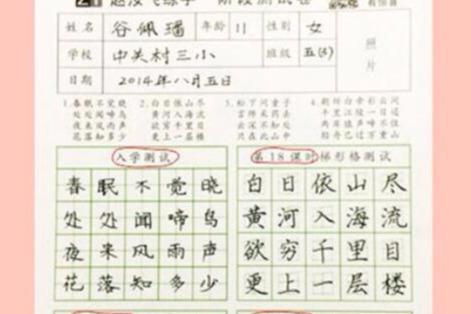 阶段测试卷
姓名 谷佩璠 年龄 11 性别 女
照片
学校 中关村三小 班级 五(3)
日期 2014年八月五日
1.春眠不觉晓
处处闻啼鸟
夜来风雨声
花落知多少
2.白日依山尽
黄河入海流
欲穷千里目
更上一层楼
3.松下问童子
言师采药去
只在此山中
云深不知处
4.朝辞白帝彩云间
千里江陵一日还
两岸猿声啼不住
轻舟已过万重山
入学测试
春眠不觉晓
处处闻啼鸟
夜来风雨声
花落知多少
第18课时梯形格测试
白日依山尽
黄河入海流
欲穷千里目
更上一层楼